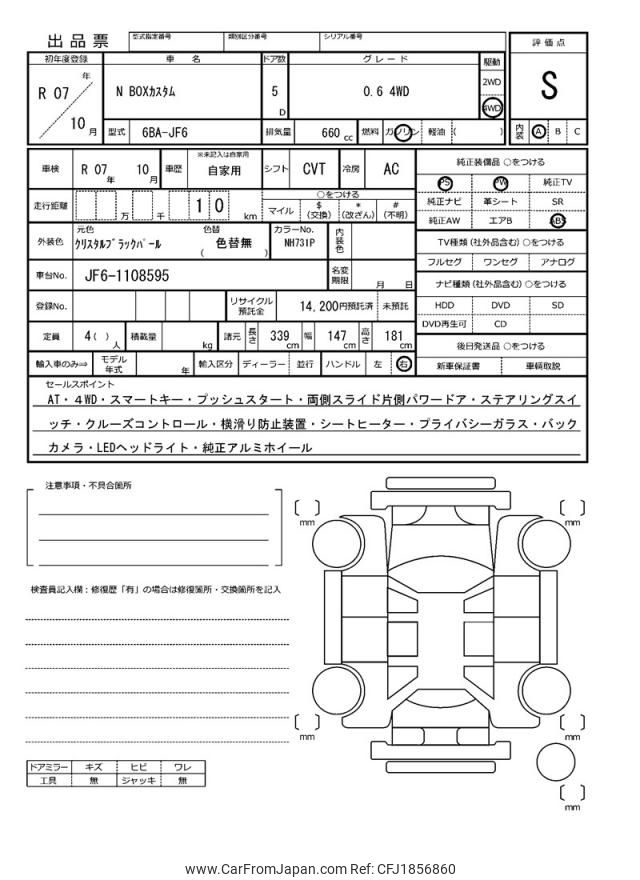 出品票
型式指定番号 類別区分番号 シリアル番号
初年度登録 車名 ドア数 グレード 駆動 評価点
R 07 年 10 月
N BOXカスタム 5 D 0.6 4WD
2WD 4WD
S
型式 6BA-JF6 排気量 660 cc 燃料 ガソリン 軽油 ( )
内装 A B C
車検 R 07 年 10 月 車歴 ※未記入は自家用 自家用 シフト CVT 冷房 AC
純正装備品 ○をつける
PS PW 純正TV
純正ナビ 革シート SR
純正AW エアB ABS
走行距離 万 千 1 0 km
○をつける
マイル $ (交換) * (改ざん) # (不明)
外装色 元色 クリスタルブラックパール 色替 ( 色替無 ) カラーNo. NH731P 内装色
TV種類 (社外品含む) ○をつける
フルセグ ワンセグ アナログ
車台No. JF6-1108595 名変期限 月 日
ナビ種類 (社外品含む) ○をつける
HDD DVD SD
DVD再生可 CD
登録No. リサイクル預託金 14,200円預託済 未預託
定員 4( ) 人 積載量 kg 諸元 長さ 339 cm 幅 147 cm 高さ 181 cm
後日発送品 ○をつける
新車保証書 車輌取説
輸入車のみ⇒ モデル年式 年 輸入区分 ディーラー 並行 ハンドル 左 右
セールスポイント
AT・4WD・スマートキー・プッシュスタート・両側スライド片側パワードア・ステアリングスイ
ッチ・クルーズコントロール・横滑り防止装置・シートヒーター・プライバシーガラス・バック
カメラ・LEDヘッドライト・純正アルミホイール
注意事項・不具合箇所
検査員記入欄:修復歴「有」の場合は修復箇所・交換箇所を記入
mm
mm
mm
mm
mm
ドアミラー キズ ヒビ ワレ
工具 無 ジャッキ 無
www.CarFromJapan.com Ref: CFJ1856860